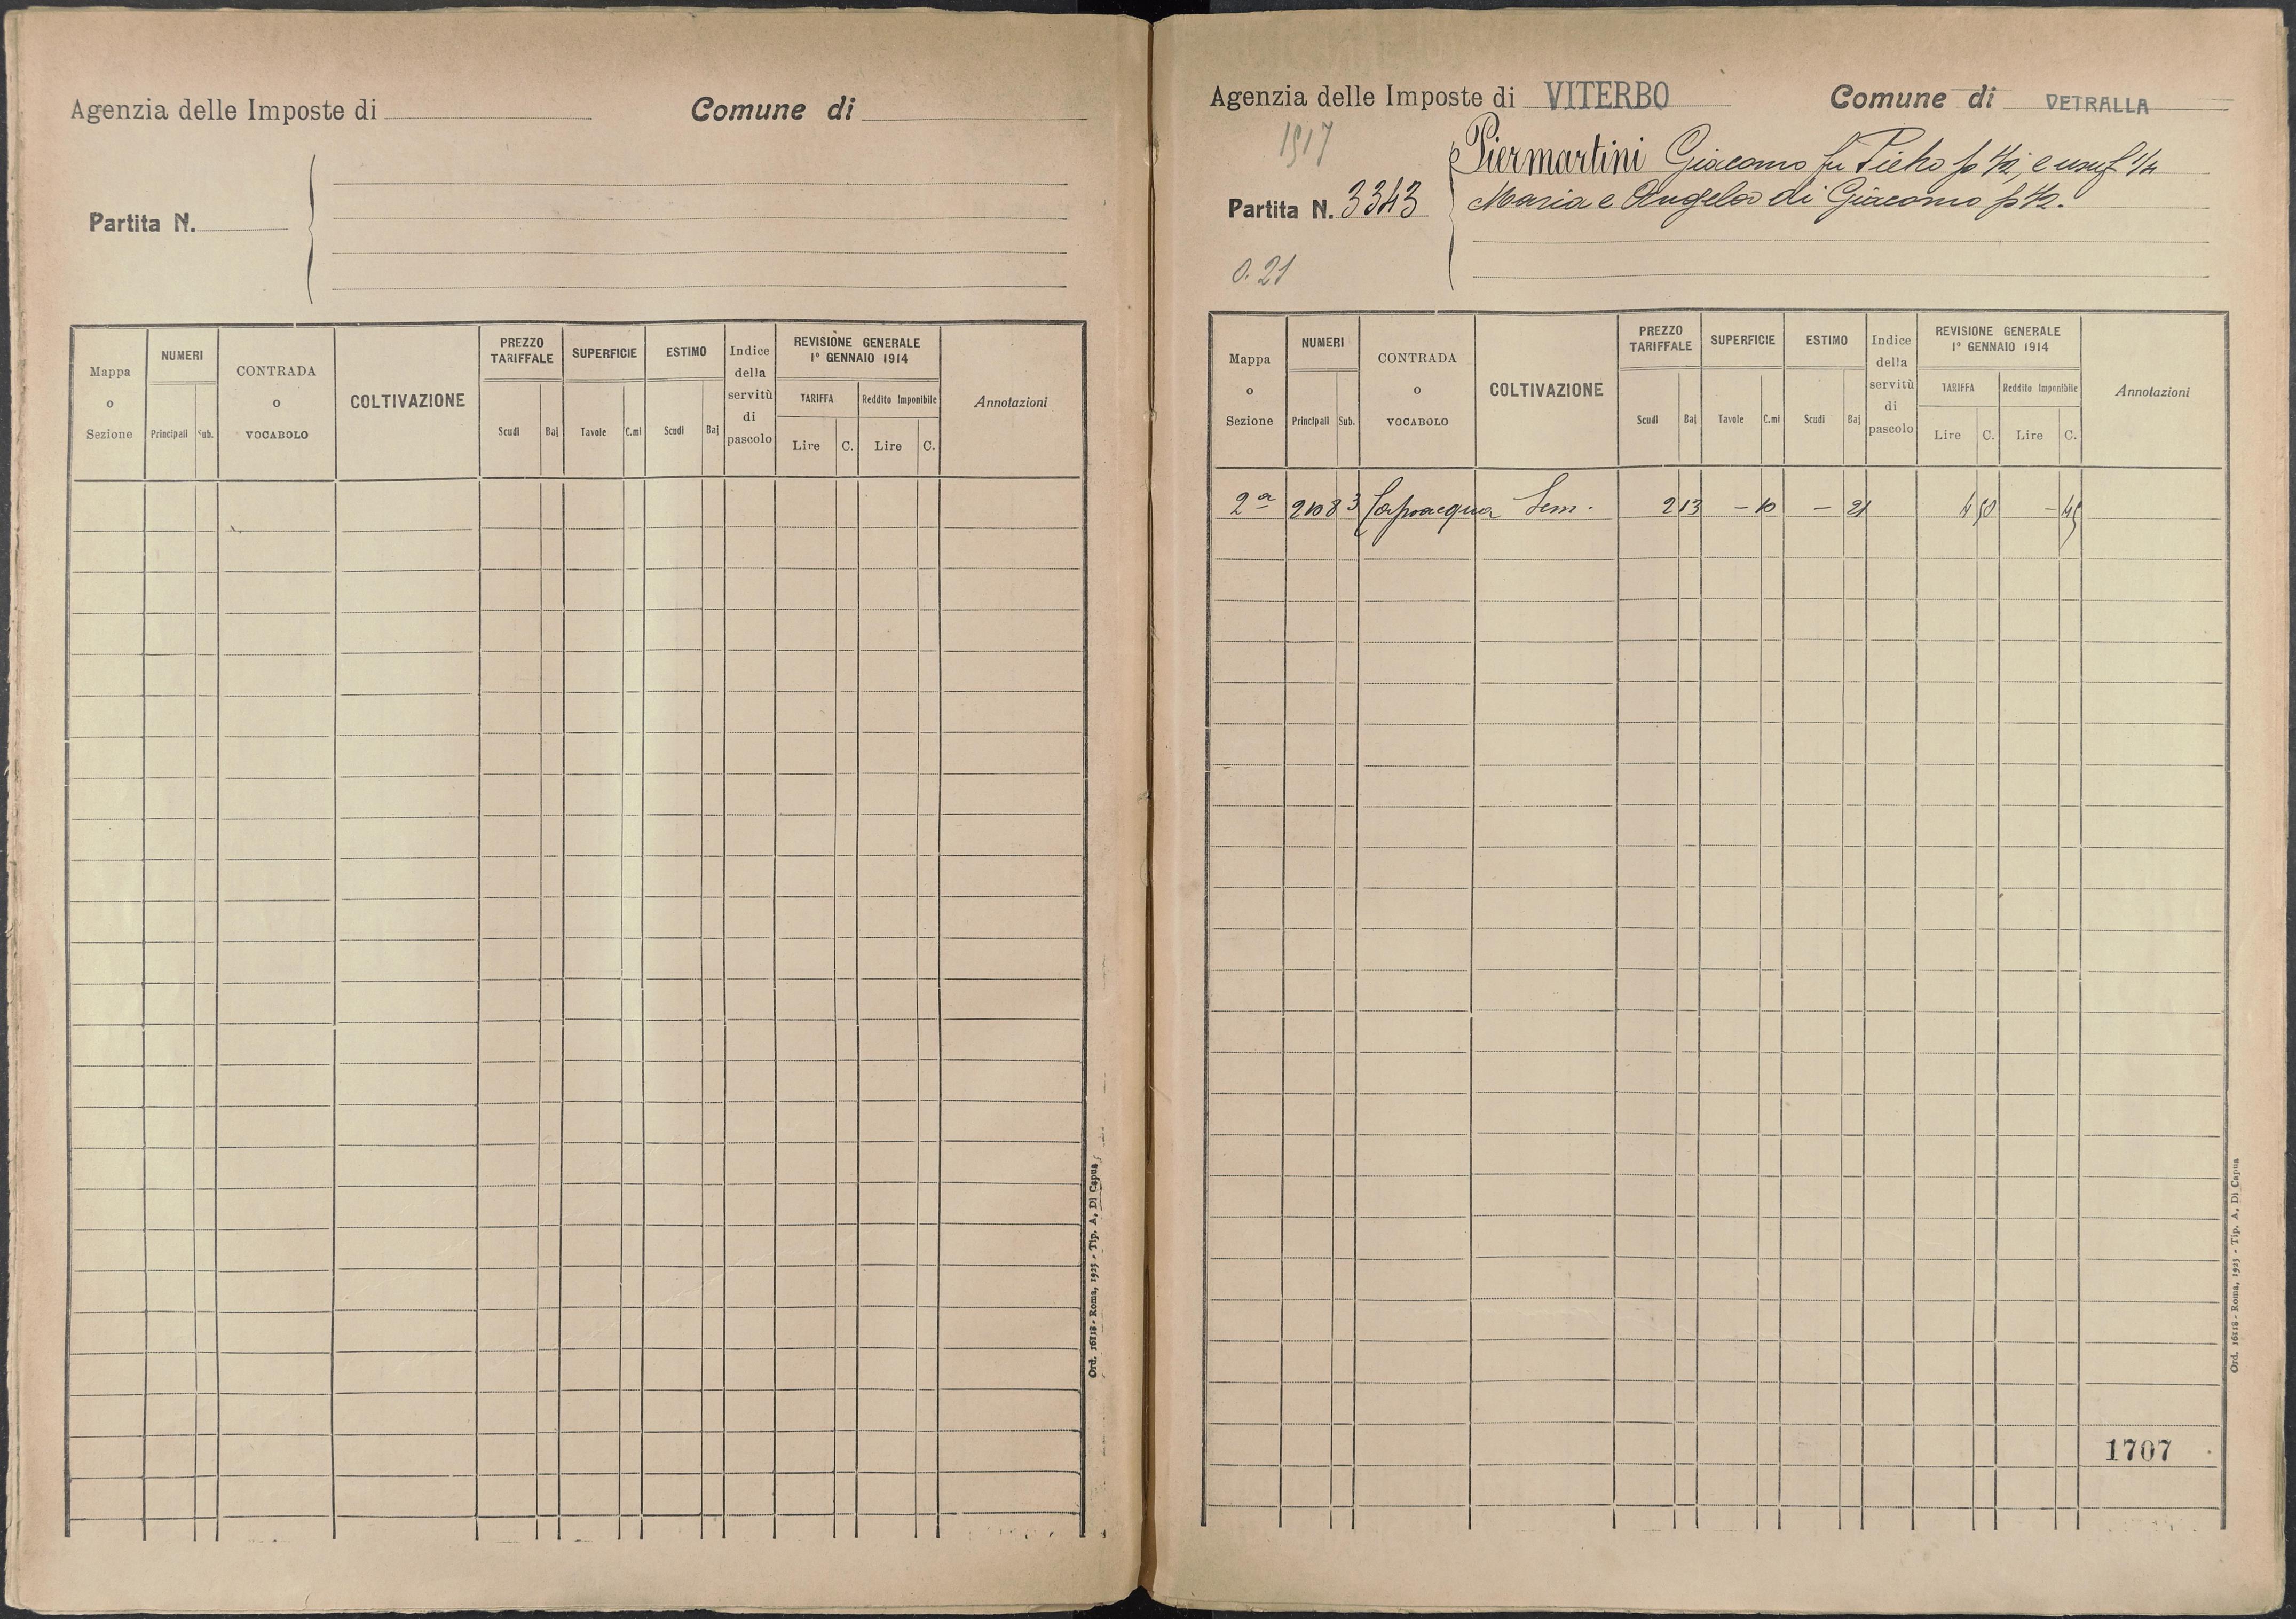 Agenzia delle Imposte di Comune di
Partita N.
Mappa o Sezione NUMERI Principali Sub. CONTRADA O VOCABOLO COLTIVAZIONE PREZZO TARIFFALE Scudi Baj SUPERFICIE Tavole C.mi ESTIMO Scudi Baj Indice della servitù di pascolo REVISIONE GENERALE 1° GENNAIO 1914 TARIFFA Lire C. Reddito Imponibile Lire C. Annotazioni
Ord. 16118 - Roma, 1923 - Tip. A. Di Capua
Agenzia delle Imposte di VITERBO Comune di VETRALLA
1917
Piermartini Giacomo fu Pietro p 1/2, e usuf 1/4
Partita N. 3343 Maria e Angela di Giacomo p 1/2.
0.21
Mappa o Sezione NUMERI Principali Sub. CONTRADA O VOCABOLO COLTIVAZIONE PREZZO TARIFFALE Scudi Baj SUPERFICIE Tavole C.mi ESTIMO Scudi Baj Indice della servitù di pascolo REVISIONE GENERALE 1° GENNAIO 1914 TARIFFA Lire C. Reddito Imponibile Lire C. Annotazioni
2ª 2108 3 Capacqua Sem. 2 13 - 10 - 21 4 50 - 45
1707
Ord. 16118 - Roma, 1923 - Tip. A. Di Capua